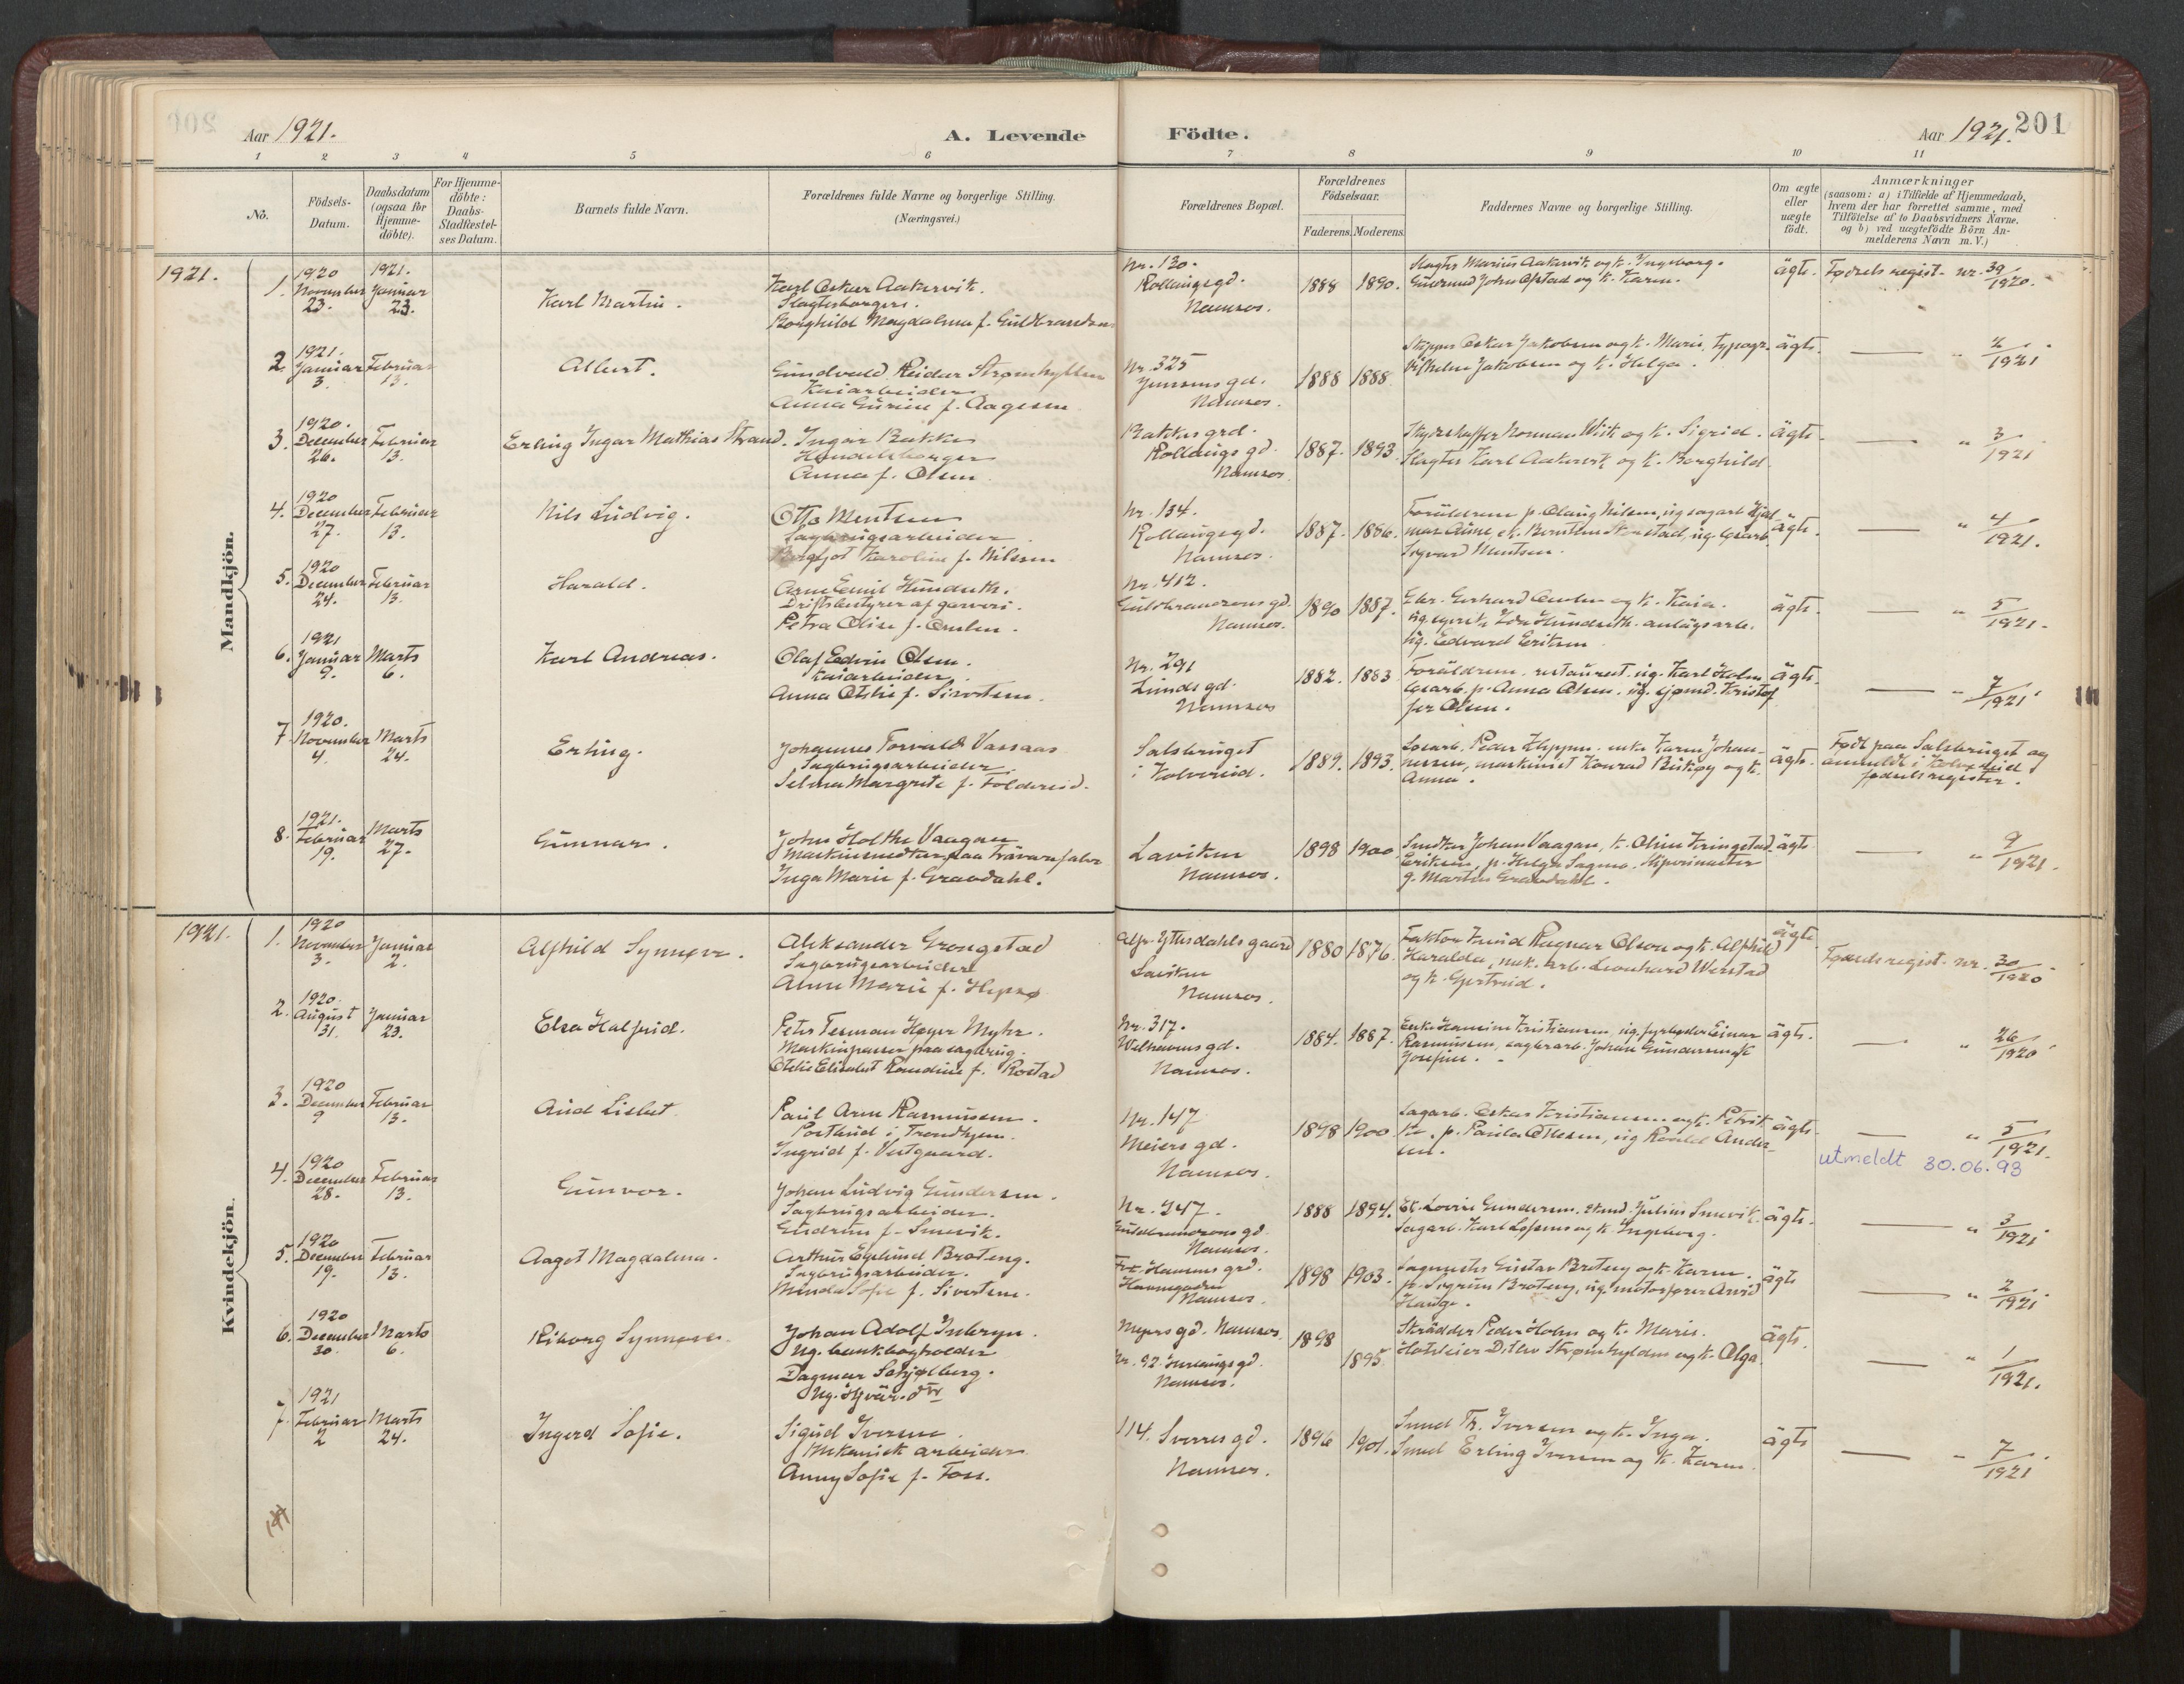 Aar 1921.
A. Levende Födte.
Aar 1921.
201
1 2 3 4 5 6 7 8 9 10 11
No.
Födsels-
Datum.
Daabsdatum
(ogsaa för
Hjemme-
döbte).
For Hjemme-
döbte:
Daabs-
Stadfæstel-
ses Datum.
Barnets fulde Navn.
Forældrenes fulde Navne og borgerlige Stilling.
(Næringsvei.)
Forældrenes Bopæl.
Forældrenes
Födselsaar.
Faderens. Moderens.
Faddernes Navne og borgerlige Stilling.
Om ægte
eller
uægte
födt.
Anmærkninger
(saasom: a) i Tilfælde af Hjemmedaab,
hvem der har forrettet samme, med
Tilföielse af to Daabsvidners Navne,
og b) ved uægtefödte Börn An-
melderens Navn m. V.)
Mandkjön.
1921.
1.
1920
November
23.
1921.
Januar
23.
Karl Martin.
Karl Oskar Aakervik.
Slagtesborger.
Borghild Magdalena f. Guldbrandsen
Nr. 130.
Rollaugsgd.
Namsos.
1888 1890.
Slagter Marius Aakervik og k. Ingeborg.
Karen.
ägte.
Fødsels regist. nr. 39/1920.
2.
1921.
Januar
3.
Februar
13.
Albert.
Gundvald Reidar Strømhyllen
Kaiarbeider
Anna f. Aagesen
Nr. 325
Jensens gd.
Namsos.
1888 1888
Skipper Oskar Jakobsen og k. Marie, Typogr.
Vilhelm Jakobsen og k. Helga.
ägte.
" 2/1921
3.
1920.
December
26.
Februar
13.
Erling Ingar Mathias Strand.
Ingar Bakke
Handelsborger
Anna f. Olsen
Bakkes grd.
Rollaugs gd.
Namsos.
1887. 1893.
Norman Wik og k. Sigrid.
Slagter Karl Aakervik og k. Borghild
ägte.
" 3/1921
4.
1920
December
27.
Februar
13.
Nils Ludvig.
Otto Mentsen
Sagbrugsarbeider
Karoline f. Nilssen
Nr. 134.
Rollaugsgd.
Namsos.
1887. 1886.
Forældrene p. Olaug Nilsen, ug. sagarb Hjal
mar Aune,
Sigvard Mentsen.
ägte.
" 4/1921.
5.
1920
December
24.
Februar
13.
Harald.
Arne Emil Hundseth.
Driftsbestyrer af garveri.
Petra Olise f.
Nr. 412.
Guldbrandsons gd.
Namsos.
1890 1887.
Gerhard og k. Kaia.
Hundseth. anlägsarb.
ug. Edvard Eriksen
ägte.
" 5/1921.
6.
1921
Januar
9.
Marts
6.
Karl Andreas.
Olaf Edvin Olsen.
Kaiarbeider.
Anna Otilie f. Sivertsen.
Nr. 291
Lunds gd.
Namsos
1882. 1883
Forældrene, restaurat. ug. Karl Holm
p. Anna Olsen. ug. sjømd. Kristof
fer Olsen.
ägte.
" 7/1921.
7.
1920.
November
4.
Marts
24.
Erling.
Johannes Torvald Vassaas
Sagbrugsarbeider.
Selma Margrete f. Foldereid.
Salsbruget
i Kolvereid.
1889. 1893.
Løsarb. Peder enke Karen Johan-
nessen, maskinist Konrad og k.
Anna.
ägte.
Født paa Salsbruget og
anmeldt i Kolvereid
fødselsregister.
8.
1921.
Februar
19.
Marts
27.
Gunnar.
Johan Holthe Vaagan
Maskinsnedker paa Trävarefabr
Inga Marie f. Gravdahl.
Laviken
Namsos.
1898 1900
Snedker Johan Vaagan, k. Oline Kringstad
Eriksen, p. Helga Sagmo.
g. Martin Gravdahl.
ägte
" 9/1921.
Kvindekjön.
1921.
1.
1920
November
3.
Januar
2.
Alfhild Synnøve.
Aleksander Grongstad
Sagbrugsarbeider
Aline Marie f. Hepsø
Alfr. Ytterdahls gaard
Laviken
Namsos.
1880 1876.
Faktor Knud Ragnar Olson og k. Alfhild
Haralda, mek. arb. Leonhard Werstad
og k. Gjertrud.
ägte
Fødsels regist. nr. 30/1920
2.
1920.
August
31.
Januar
23.
Elsa Halfrid.
Peter Tesman Høyer Myhr.
Maskinpasser paa sagbrug.
Otelie Elisabet Ramdine f. Rostad
Nr. 317.
Welhavens gd.
Namsos.
1884. 1887.
Enke Hansine Kristiansen, ug. fyrbøder Einar
Rasmussen, sagbrarb. Johan Gundersen og k
Josefine.
ägte.
" 26/1920
3.
1920
December
9
Februar
13.
Aud Lisbet
Paul Arne Rasmussen.
Postbud i Trondhjem.
Ingrid f. Vestgaard.
Nr. 147
Meiers gd.
Namsos.
1898 1900
Sagarb. Oskar Kristiansen og k. Petrik
ke, p. Paula Ottesen, ug Roald Ander
sen.
ägte
" 5/1921.
utmeldt 30.06.93
4.
1920
December
28.
Februar
13.
Gunvor.
Johan Ludvig Gundersen.
Sagbrugsarbeider.
Gudrun f. Smevik.
Nr. 447.
Guldbrandsons gd
Namsos.
1888 1894.
Lovise Gundersen. Julius Smevik.
Sagarb. Karl og k. Ingeborg.
ägte.
" 3/1921
5.
1920
December
19.
Februar
13.
Aagot Magdalena.
Arthur Egelund Brøteng.
Sagbrugsarbeider.
Minda Sofie f. Sivertsen.
Hansens grd.
Havnegaden
Namsos.
1898 1903.
Sagmester Gustav Brøteng og k. Karen.
p. Sigrun Brøteng, ug. motorfører Arvid
Hauge.
ägte
" 2/1921
6.
1920
December
30.
Marts
6.
Riborg Synnøve.
Johan Adolf Inderyn.
Ug. bankbogholder
Dagmar Schjølberg.
Meyers gd. Namsos.
Nr. 92
Namsos.
1898
1895.
Skrädder Peder Holm og k. Marie.
Ditlev Strømhylden og k. Olga
ägte.
" 1/1921.
7.
1921
Februar
2
Marts
24.
Ingerd Sofie.
Sigurd Iversen
Mekanisk arbeider
Anny Sofie f. Foss.
114. Sverres gd.
Namsos.
1896 1901.
Smed Th. Iversen og k. Inga.
Smed Erling Iversen og k. Karen
ägte
" 7/1921